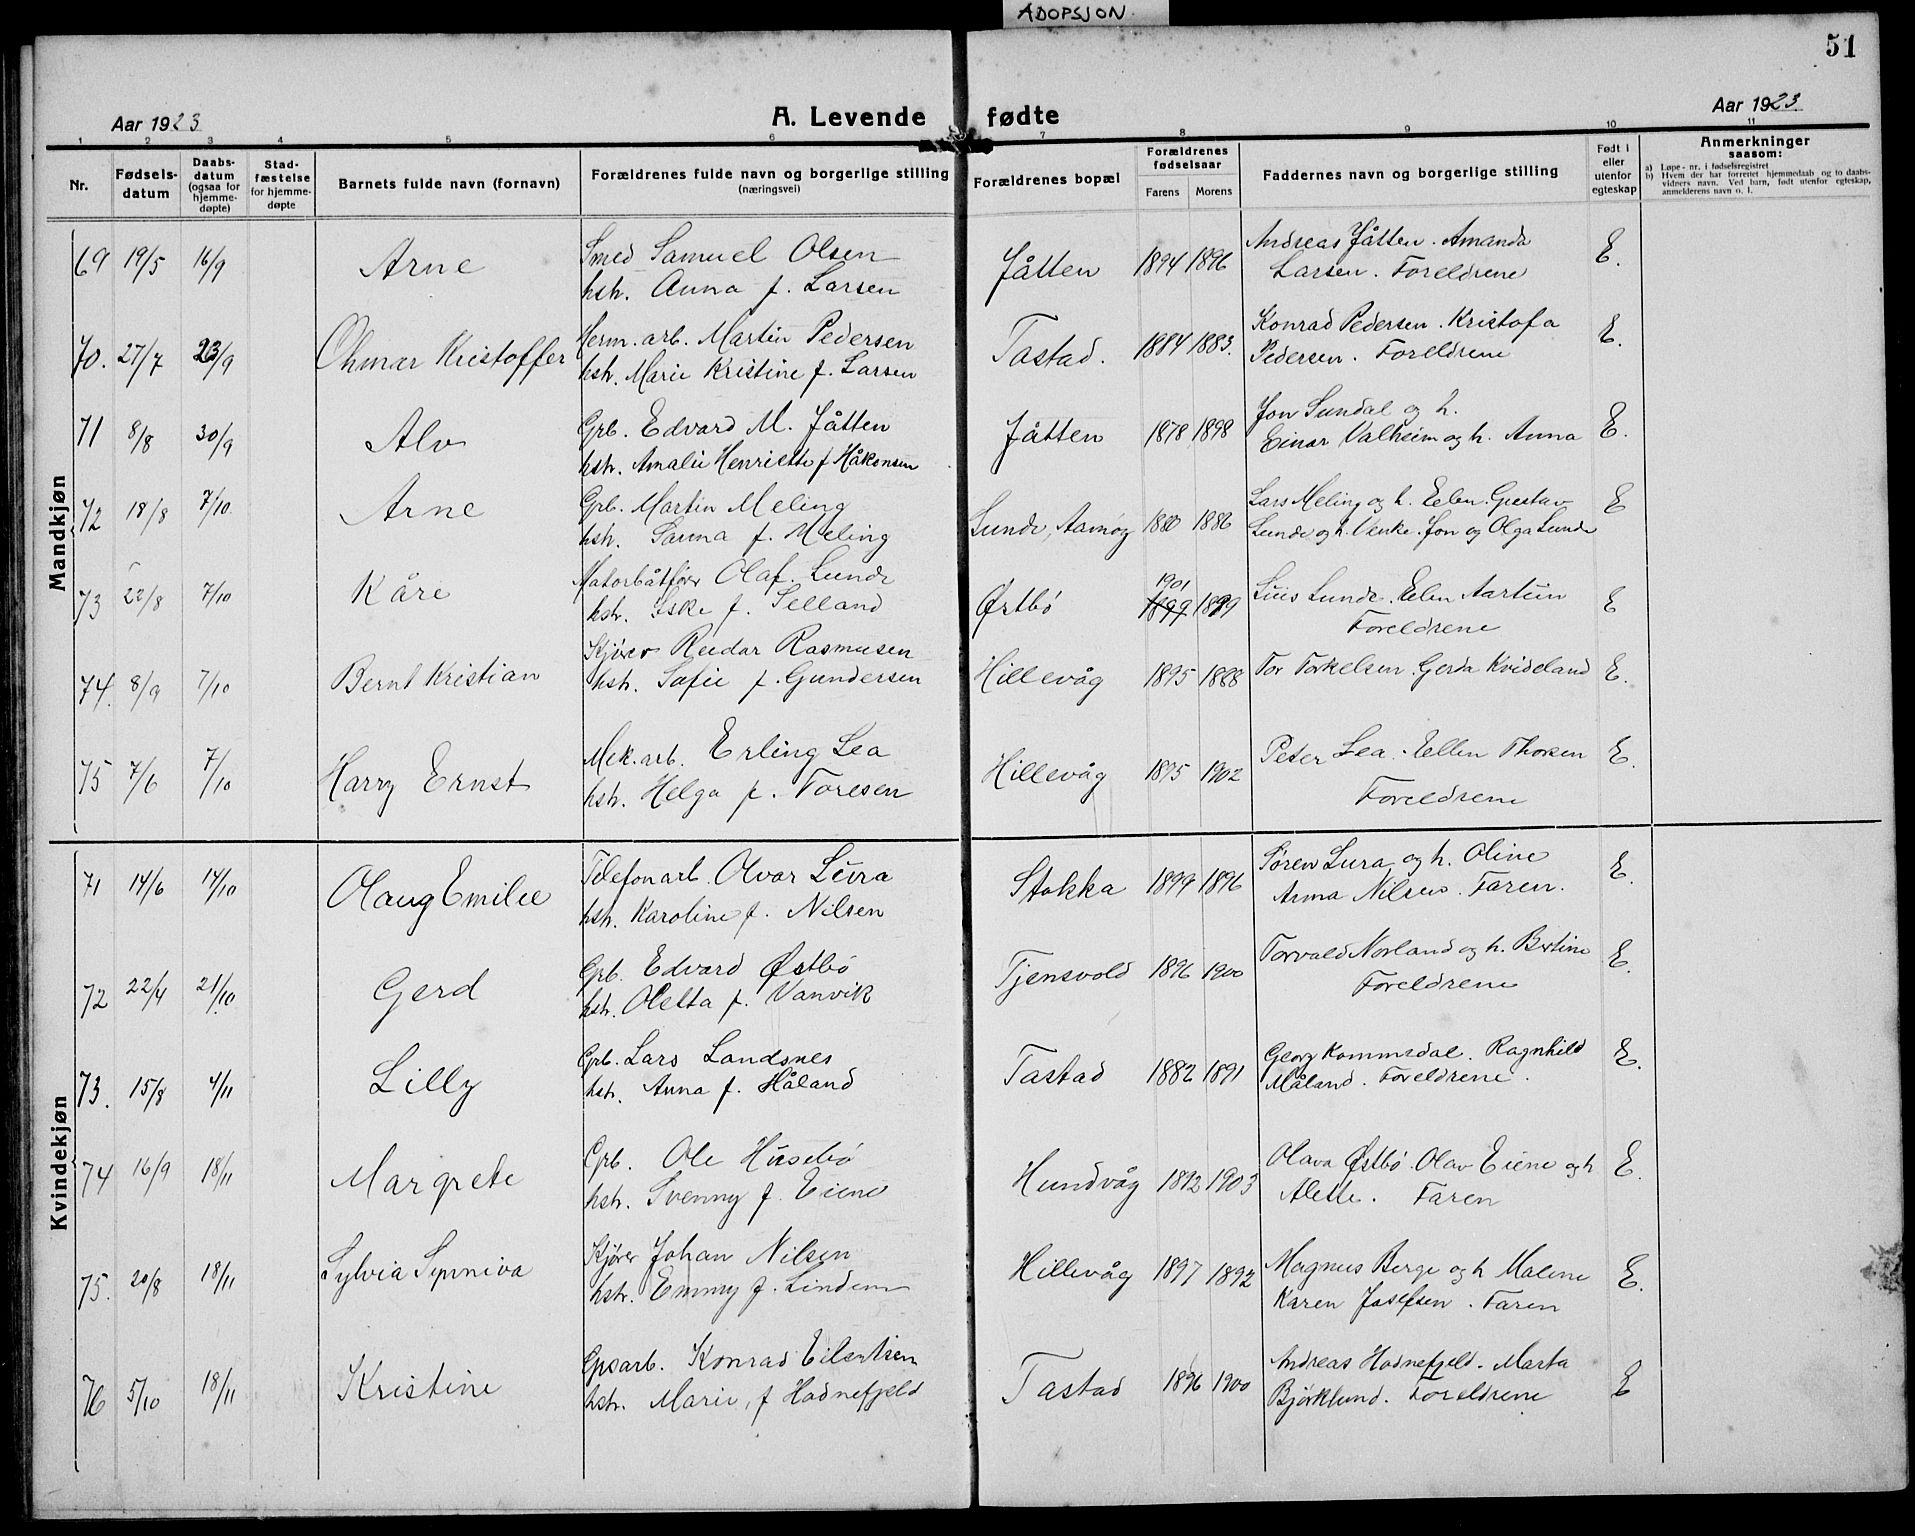 ADOPSJON.
51
Aar 1923
A. Levende fødte
Aar 1923
1 2 3 4 5 6 7 8 9 10 11
Nr.
Fødsels-
datum
Daabs-
datum
(ogsaa for
hjemme-
døpte)
Stad-
fæstelse
for hjemme-
døpte
Barnets fulde navn (fornavn)
Forældrenes fulde navn og borgerlige stilling
(næringsvei)
Forældrenes bopæl
Forældrenes
fødselsaar
Farens Morens
Faddernes navn og borgerlige stilling
Født i
eller
utenfor
egteskap
Anmerkninger
saasom:
a) Løpe-nr. i fødselsregistret
b) Hvem der har forrettet hjemmedaab og to daabs-
vidners navn. Ved barn, født utenfor egteskap,
anmelderens navn o. l.
Mandkjøn
69 19/5 16/9 Arne
Smed Samuel Olsen
hstr. Anna f. Larsen
Jåtten 1894 1896
Andreas Jåtten. Amanda
Larsen. Foreldrene
E.
70. 27/7 23/9 Kristoffer
Herm. arb. Martin Pedersen
hstr. Marie Kristine f. Larsen
Tastad. 1884 1883.
Konrad Pedersen. Kristofa
Pedersen. Foreldrene
E.
71 8/8 30/9 Alv
Grb. Edvard M. Jåtten
hstr. Amalie Henriette f Håkonsen
Jåtten 1878 1898
Jon Sundal og h.
Einar Valheim og h. Anna
E.
72 18/8 7/10 Arne
Grb. Martin Meling
hstr. f. Meling
Sunde, 1886
Lars Meling og h. Elen. Gustav
Sunde og h. Jon og Olga Sunde
E
73 22/8 7/10 Kåre
Motorbåtfører Olaf. Lunde
hstr. f. Selland
Østbö 1901
1899 1899
Lunde. Elen Aartun
Foreldrene
E
74. 8/9 7/10 Bernt Kristian
Kjörer Reidar Rasmusen
hstr. Sofie f. Gundersen
Hillevåg 1895 1888
Tor Torkelsen. Gerda Kvideland
E.
75 7/6 7/10 Harry Ernst
Mek. arb. Erling Lea
hstr. Helga f. Toresen
Hillevåg 1895 1902
Peter Lea. Ellen Thorsen
Foreldrene
E.
Kvindekjøn
71 14/6 14/10 Olaug Emilie
Telefonarb. Olvar Lura
hstr. Karoline f. Nilsen
Stokka 1899 1896
Søren Lura og h. Oline
Anna Nilsen. Faren.
E.
72 22/4 21/10 Gerd
Grb. Edvard Østbö
hstr. Oletta f. Vanvik
Tjensvold 1896 1900
Torvald Norland og h. Bertine
Foreldrene
E.
73. 15/8 4/11 Lilly
Grb. Lars Landsnes
hstr. Anna f. Håland
Tastad 1882 1891
Georg Kommedal. Ragnhild
Måland. Foreldrene.
E.
74 16/9 18/11 Margrete
Grb. Ole Husebö
hstr. Svenny f. Eiene
Hundvåg 1892 1903
Olava Østbö. Olav Eiene og h
Alette. Faren
E.
75. 20/8 18/11 Sylvia Synniva
Kjører Johan Nilsen
hstr. Emmy f. Lindem
Hillevåg 1897 1892
Magnus Berge og h Malene
Karen Josefsen. Faren
E.
76 5/10 18/11 Kristine
Konrad Eilertsen
hstr. Marie, f Hodnefjeld
Tastad 1896 1900
Andreas Hodnefjeld. Marta
Björklund. Foreldrene
E